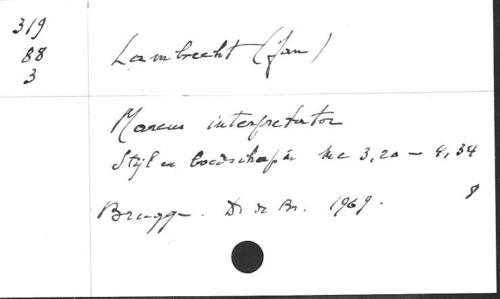 319
88
3
Lambrecht (Jan)
Marcus interpretator
Stijl en boodschap in Mc 3,20 – 4,34
Brugge. D. de Br. 1969.
8